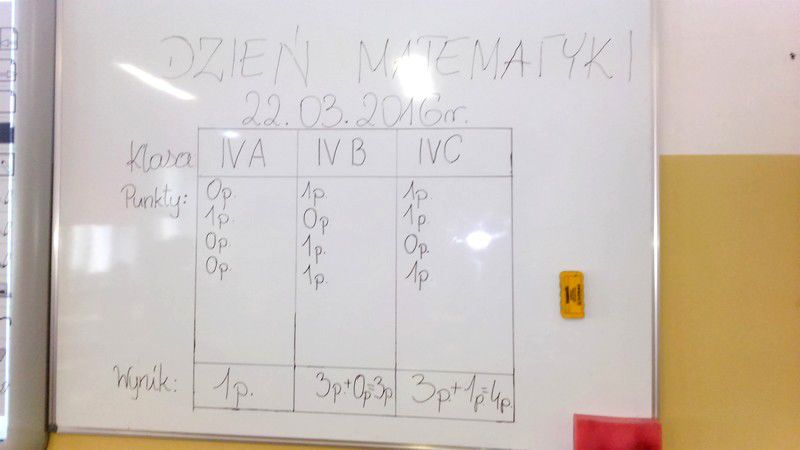 DZIEŃ MATEMATYKI
22.03.2016r.
Klasa IV A IV B IV C
Punkty: 0p. 1p. 1p.
1p. 0p 1p
0p. 1p. 0p.
0p. 1p 1p.
Wynik: 1p. 3p.+0p=3p 3p.+1p=4p